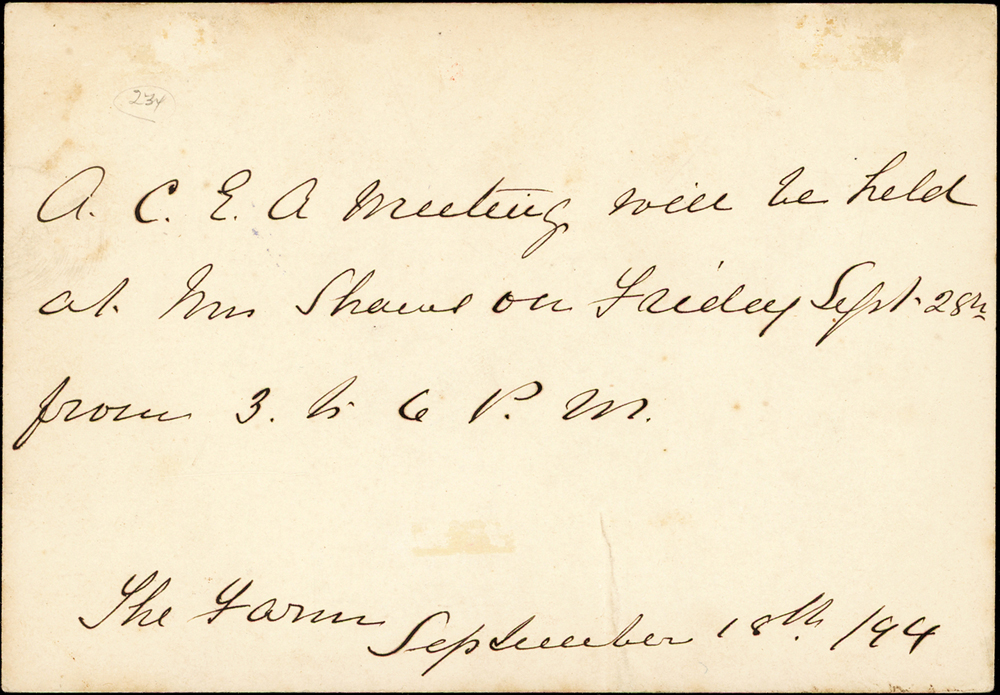 234
A. C. E. A Meeting will be held
at Mrs Shaws on Friday Sept. 28th
from 3. to 6 P. M.
The Farm
September 18th /94